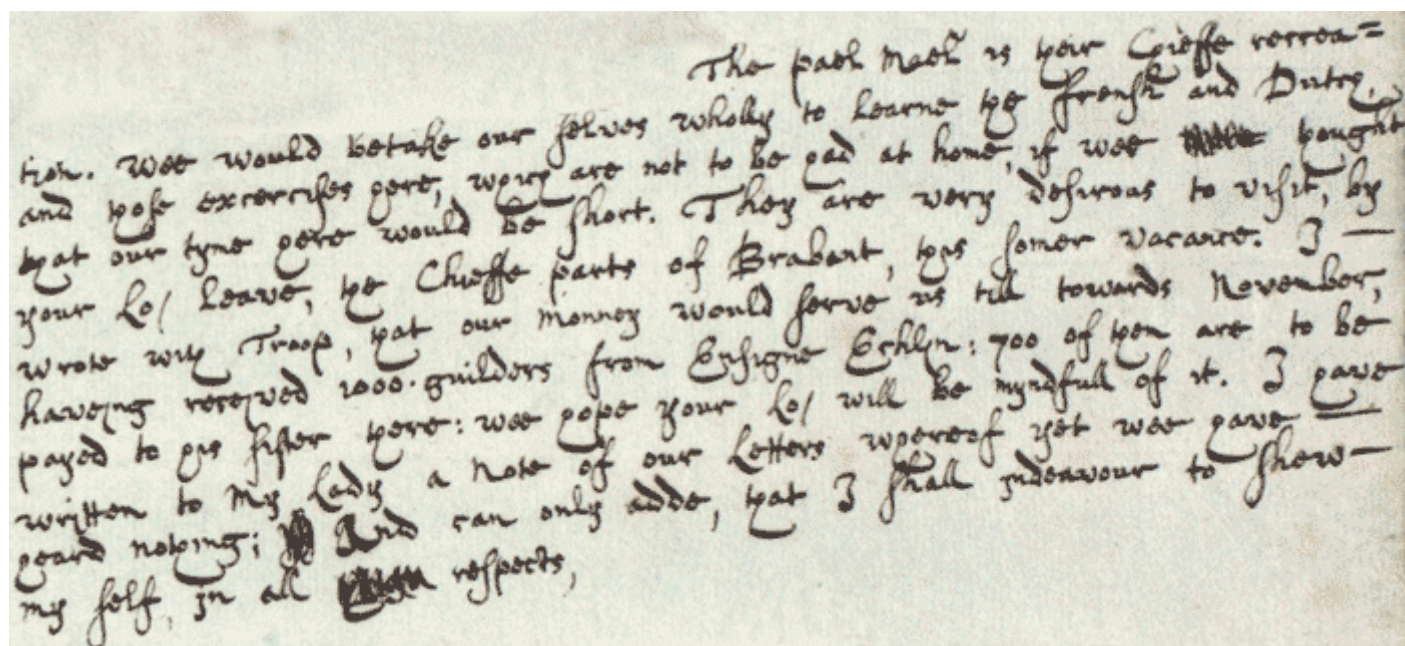 The pael Mael is their Chieffe recrea=
tion. Wee would betake our selves wholly to learne the frensh and Dutch,
and those excercises here, which are not to be had at home, if wee thought
that our tyme here would be short. They are very desirous to visit, by
your Lo/ leave, the Chieffe parts of Brabant, this somer vacance. I —
wrote with Troop, that our monney would serve us till towards November,
haveing recejved 1000. guilders from Ensigne Echlyn: 700 of them are to be
payed to his sister there: wee hope your Lo/ will be myndfull of it. I have
written to My Lady a Note of our Letters whereof yet wee have —
heard nothing; And can only adde, that I shall jndeavour to shew —
my self, jn all respects,